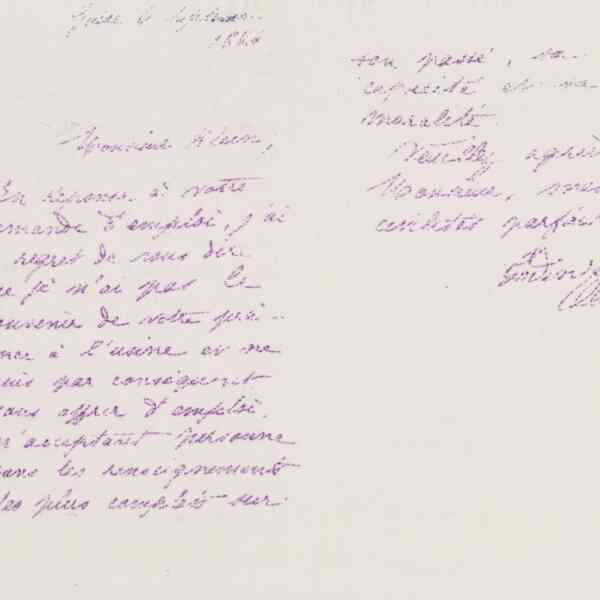 Guise le
Monsieur
En réponse à votre
emande d'emploi, j'ai
regret de vous dire
ue je n'ai pas le
ouvenir de votre pré-
nce à l'usine et ne
uis par conséquent
ous offrir d'emploi,
n'acceptant personne
ans les renseignements
les plus complets sur
son passé, sa
capacité et sa
moralité.
Veuillez agréer
Monsieur, mes
civilités parfai